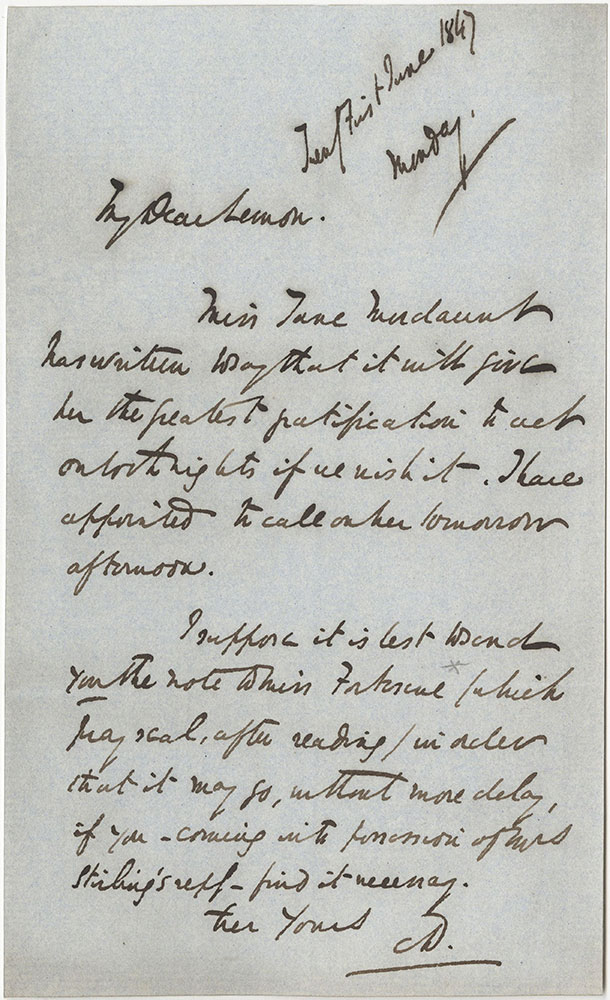 Twenty First June 1847
Monday.
My Dear Lemon.
Miss Jane Mordaunt
has written to say that it will give
her the greatest gratification to act
on both nights if we wish it. I have
appointed to call on her tomorrow
afternoon.
I suppose it is best to send
you the note to Miss Fortescue (which
pray seal, after reading) in order
that it may go, without more delay,
if you - coming into possession of Mrs
Stirling's reply - find it necessary.
Ever Yours
CD.